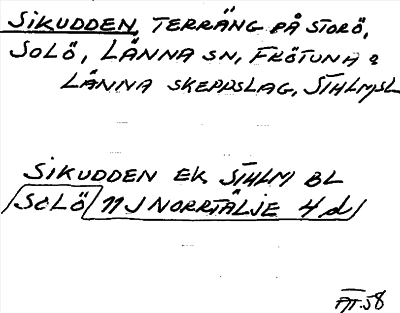 SIKUDDEN, TERRÄNG PÅ STORÖ,
SOLÖ, LÄNNA SN, FRÖTUNA &
LÄNNA SKEPPSLAG, STHLMSL
SIKUDDEN EK STHLM BL
SOLÖ 11J NORRTÄLJE 4d